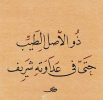 ذُو الأَصْلِ الطَّيِّبِ
حَتَّىٰ فِي عَدَاوَتِهِ شَرِيفٌ